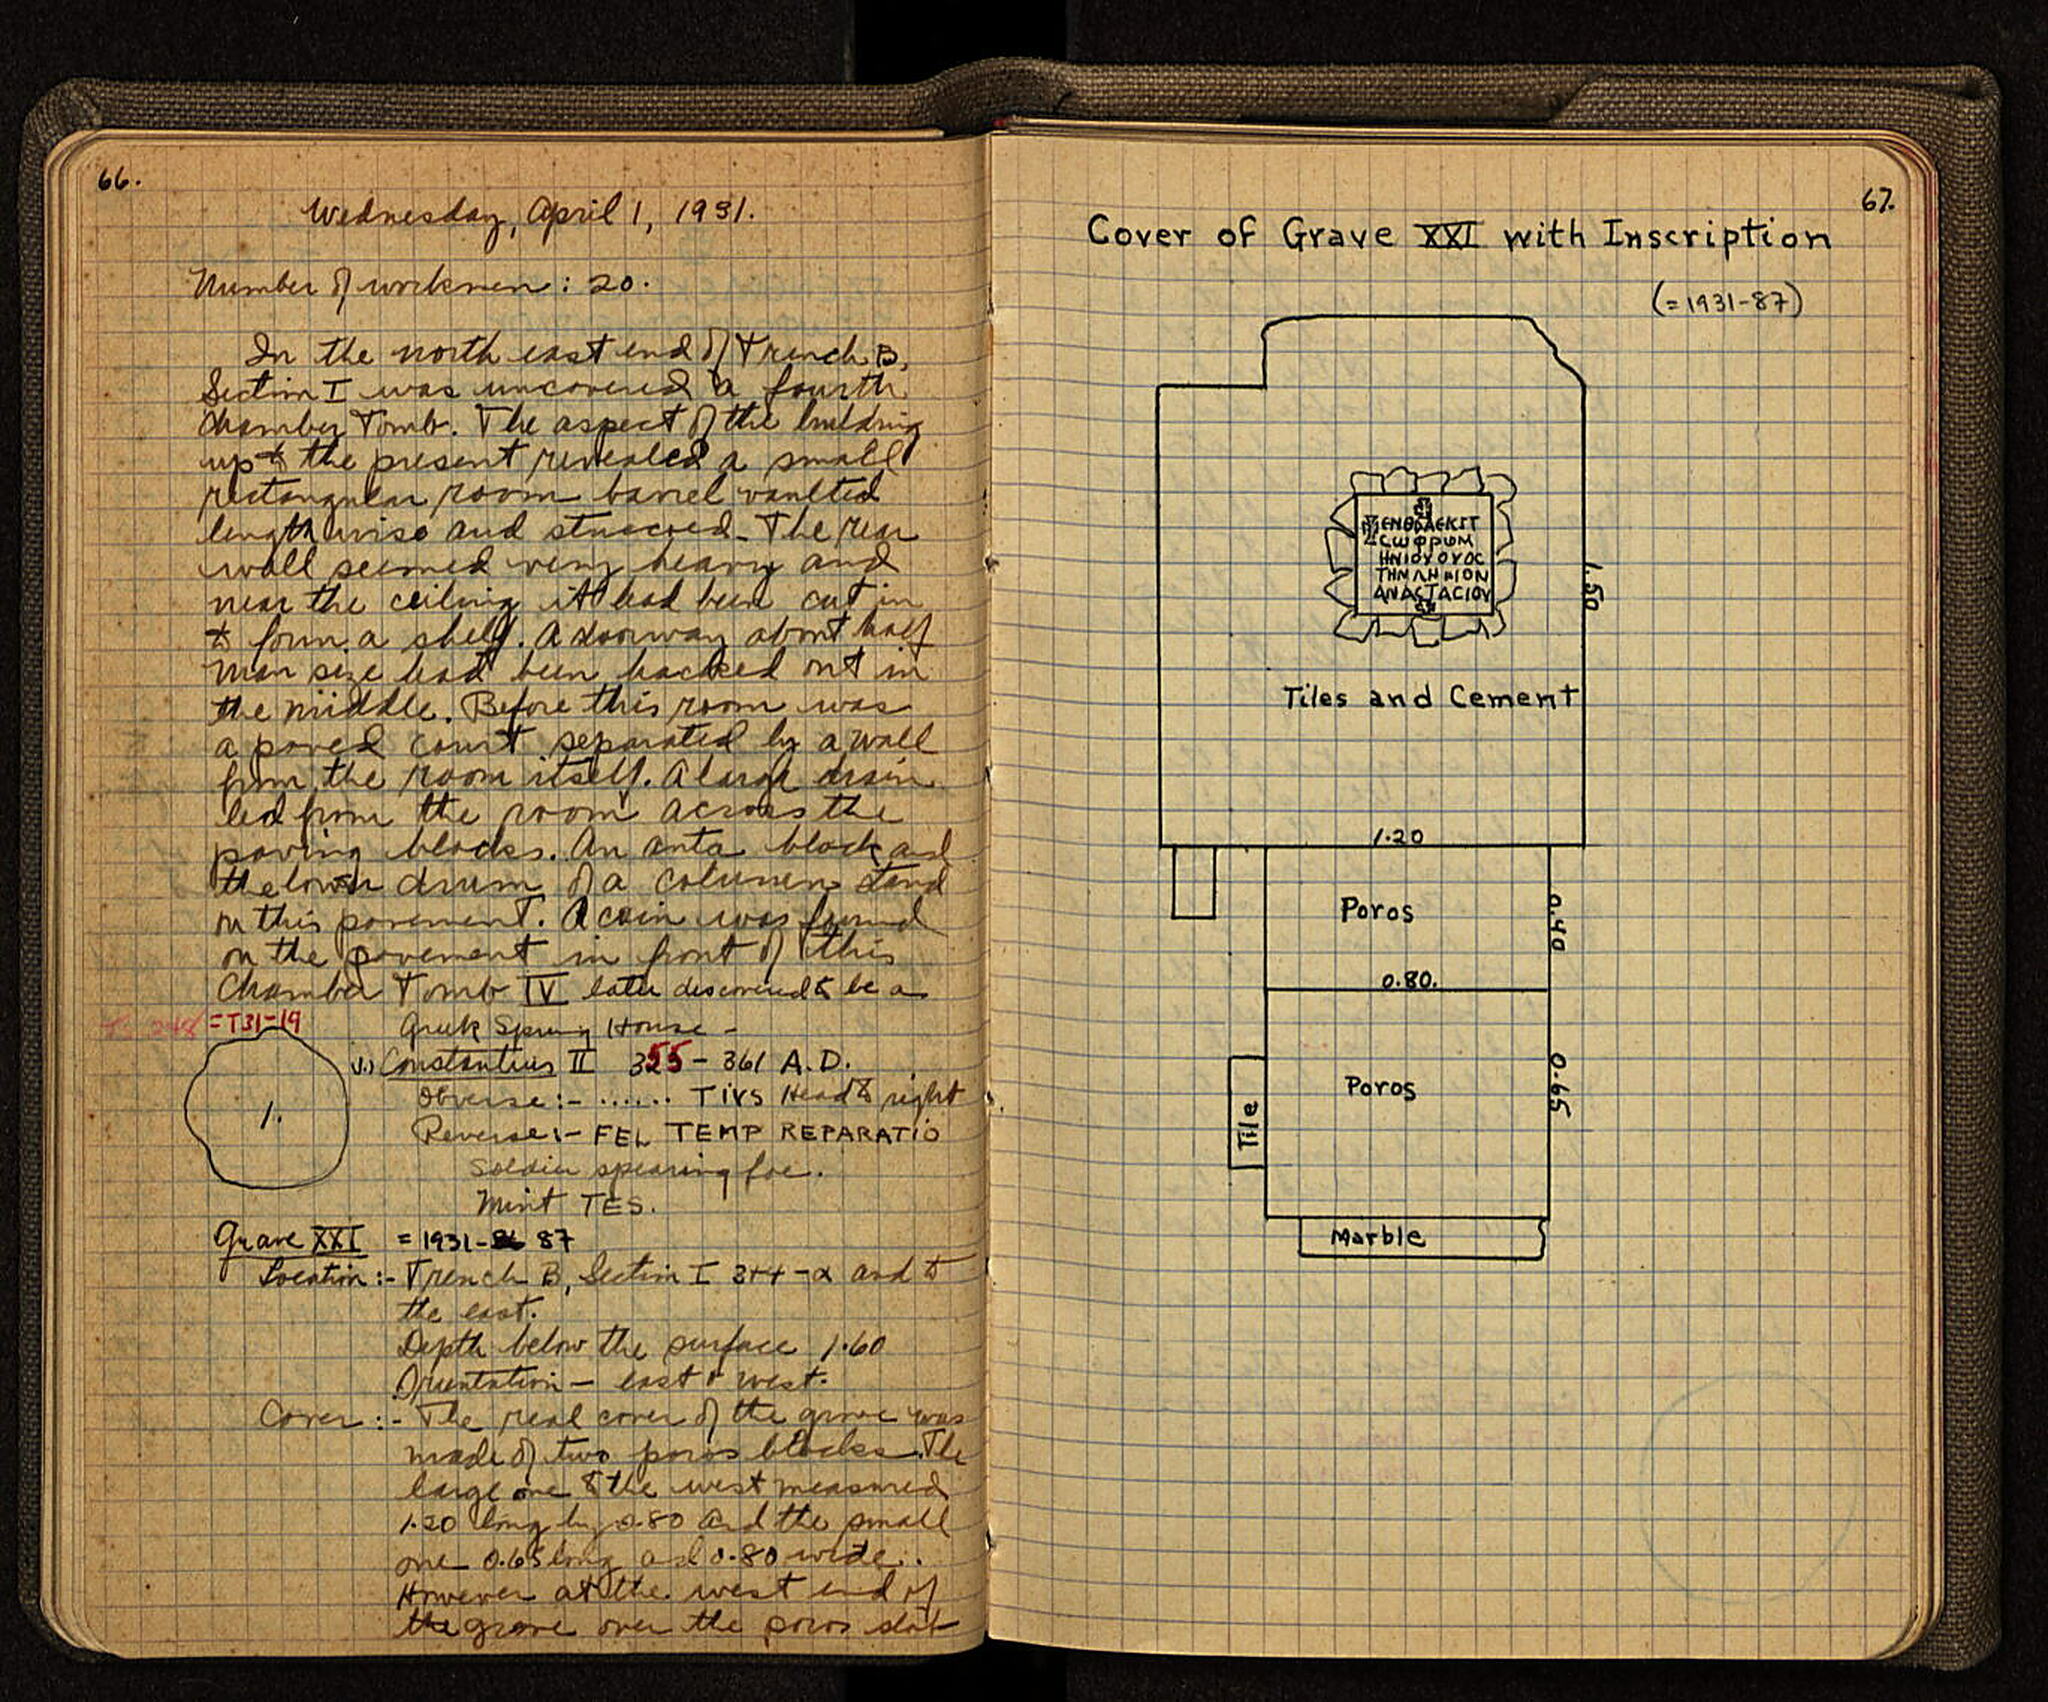 66.
Wednesday, April 1, 1931.
Number of workmen : 20.
In the north east end of Trench B,
Section I was uncovered a fourth
Chamber Tomb. The aspect of the building
up to the present revealed a small
rectangular room barrel vaulted
lengthwise and stuccoed. The rear
wall seemed very heavy and
near the ceiling it had been cut in
to form a shelf. A doorway about half
man size had been hacked out in
the middle. Before this room was
a paved court separated by a wall
from the room itself. A large drain
led from the room across the
paving blocks. An anta block and
the lower drum of a column stand
on this pavement. A coin was found
on the pavement in front of this
Chamber Tomb IV later discovered to be a
= T31-19 Greek Spring House -
1. 1.) Constantius II 355 - 361 A.D.
Obverse :- ...... TIVS Head to right
Reverse :- FEL TEMP REPARATIO
Soldier spearing foe.
Mint TES.
Grave XXI = 1931-86 87
Location :- Trench B, Section I 3+4 - α and to
the east.
Depth below the surface 1.60
Orientation - east & west.
Cover :- The real cover of the grave was
made of two poros blocks. The
large one to the west measured
1.20 long by 0.80 and the small
one 0.65 long and 0.80 wide.
However at the west end of
the grave over the poros slab
67.
Cover of Grave XXI with Inscription
(= 1931-87)
ΕΝΘΑΔΕΚΙΤ
CωΦΡωΜ
ΗΝΙΟΥΟΥΟC
ΤΗΜΛΗΜΙΟΝ
ΑΝΑCΤΑCΙΟΥ
1.50
Tiles and Cement
1.20
Poros
0.40
0.80.
Poros
0.65
Tile
Marble